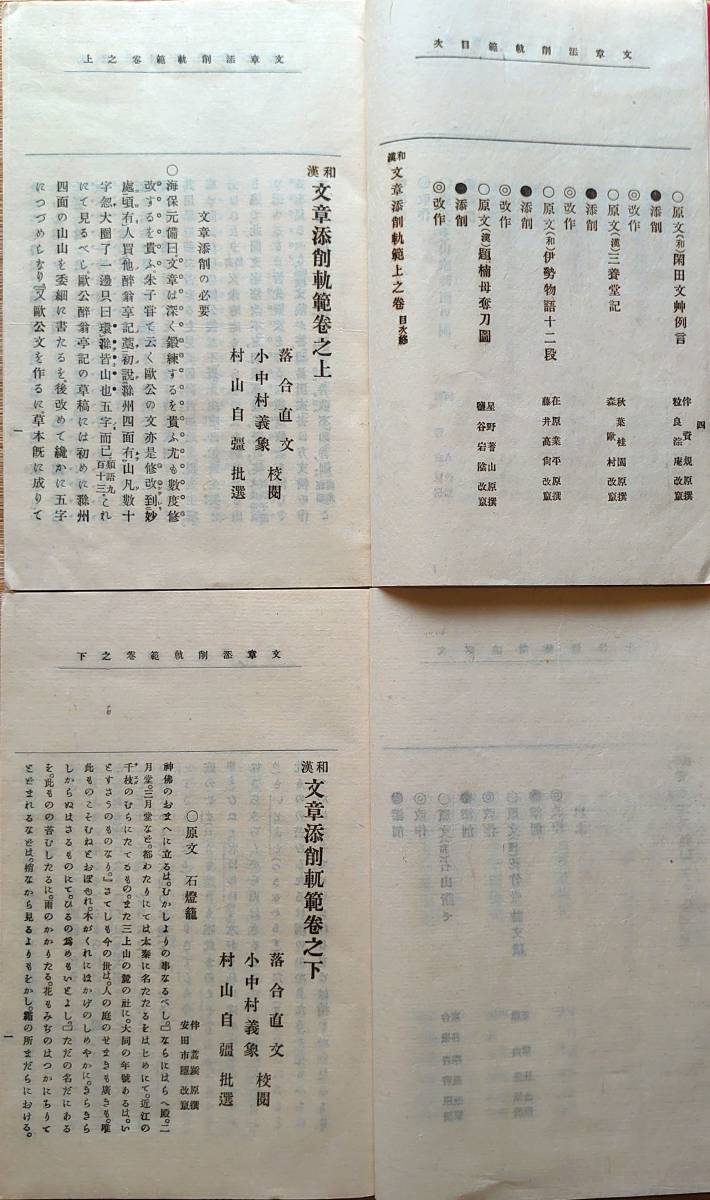 文章添削軌範目次
○原文(和)閑田文艸例言
伴資規原撰
●添削
粒良淙庵改竄
◎改作
○原文(漢)三養堂記
秋葉桂園原撰
●添削
森歐村改竄
◎改作
○原文(和)伊勢物語十二段
在原業平原撰
●添削
藤井高尚改竄
◎改作
○原文(漢)題楠母奪刀圖
星野著山原撰
●添削
鹽谷岩陰改竄
◎改作
和漢文章添削軌範上之卷目次終
四
文章添削軌範卷之上
和漢文章添削軌範卷之上
落合直文
小中村義象校閱
村山自彊批選
文章添削の必要
○海保元備曰文章は深く鍛練するを貴ふ尤も數度修
改するを貴ふ、朱子嘗て云く歐公の文亦是修改到妙
處頃有人買他醉翁亭記藁初說滁州四面有山凡數十
字忽大圈了一邊只曰環滁皆山也五字而已語類九百十三これ
にて見るべし、歐公醉翁亭記の草稿には初めに滁州
四面の山山を委細に書たるを、後改めて纔かに五字
につづめしなり又歐公文を作るに、草本旣に成りて
一
文章添削軌範卷之下
和漢文章添削軌範卷之下
落合直文
小中村義象校閱
村山自彊批選
○原文石燈籠
伴蒿蹊原撰
安田市隱改竄
神佛のおまへに立るは。むかしよりの事なるべし。』ならにはらへ殿。二
月堂。三月堂など。都わたりにては太秦に名たたるをはじめにて。近江の
千枝のむらにたてるもの。また三上山の麓の社に。大同の年號あるは。い
とすさうのものなり。』さてしも今の世は。人の庭のせまきも廣きも。唯
此ものこそむねとおぼゆれ。木がくれにほかげのしめやかに。きらきら
しからぬはさるものにて。ひるの爲めもいとよし。』ただの名だにある
を。此ものの苔むしたるに。雨のかかりたる。花もみぢのはつかにちりて
とどまれるなどは。梢ながら見るよりもをかし。霜の所まだらにおける。
一